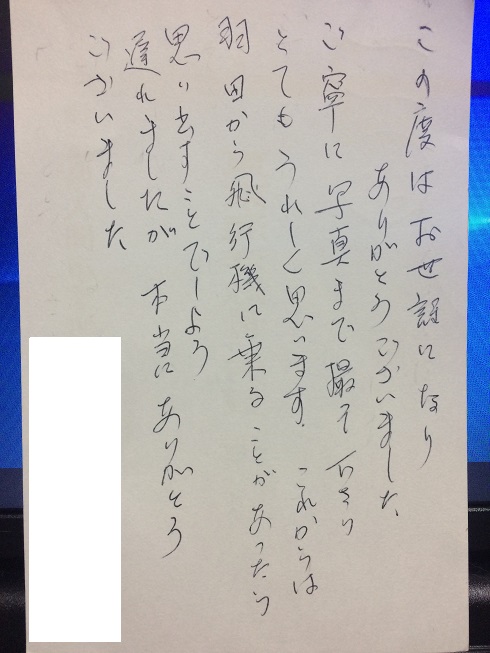 この度はお世話になり
ありがとうございました
ご寧に写真まで撮って下さり
とてもうれしく思います. これからは
羽田から飛行機に乗ることがあったら
思い出すことでしょう
遅れましたが 本当にありがとう
ございました